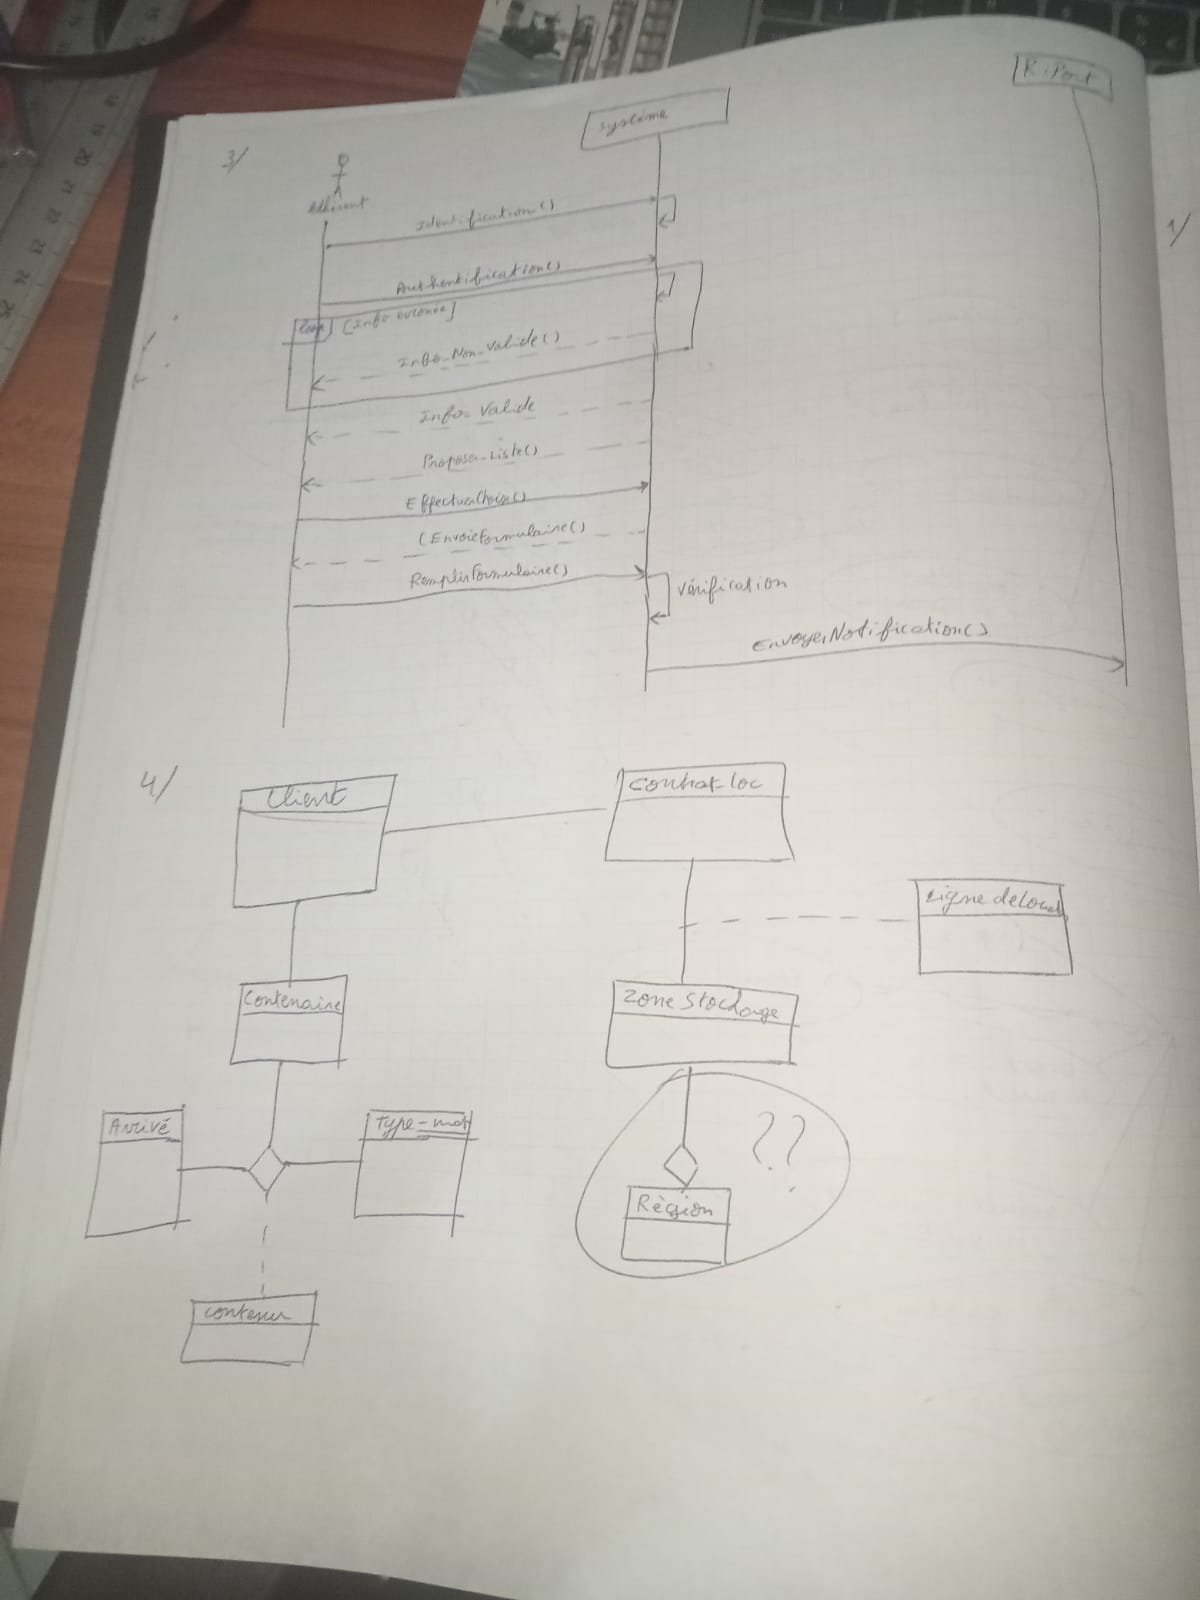 3/
Système
R.Port
Adhérent
Identification()
Authentification()
loop [Info erronée]
Info-Non-Valide()
Info-Valide
Proposer-Liste()
EffectuerChoix()
(EnvoieFormulaire()
RemplirFormulaire()
Vérification
EnvoyerNotification()
1/
4/
Client
Contrat-loc
Ligne deLocat
Contenaire
Zone Stockage
Arrivé
Type-mat
??
Règion
Contenu